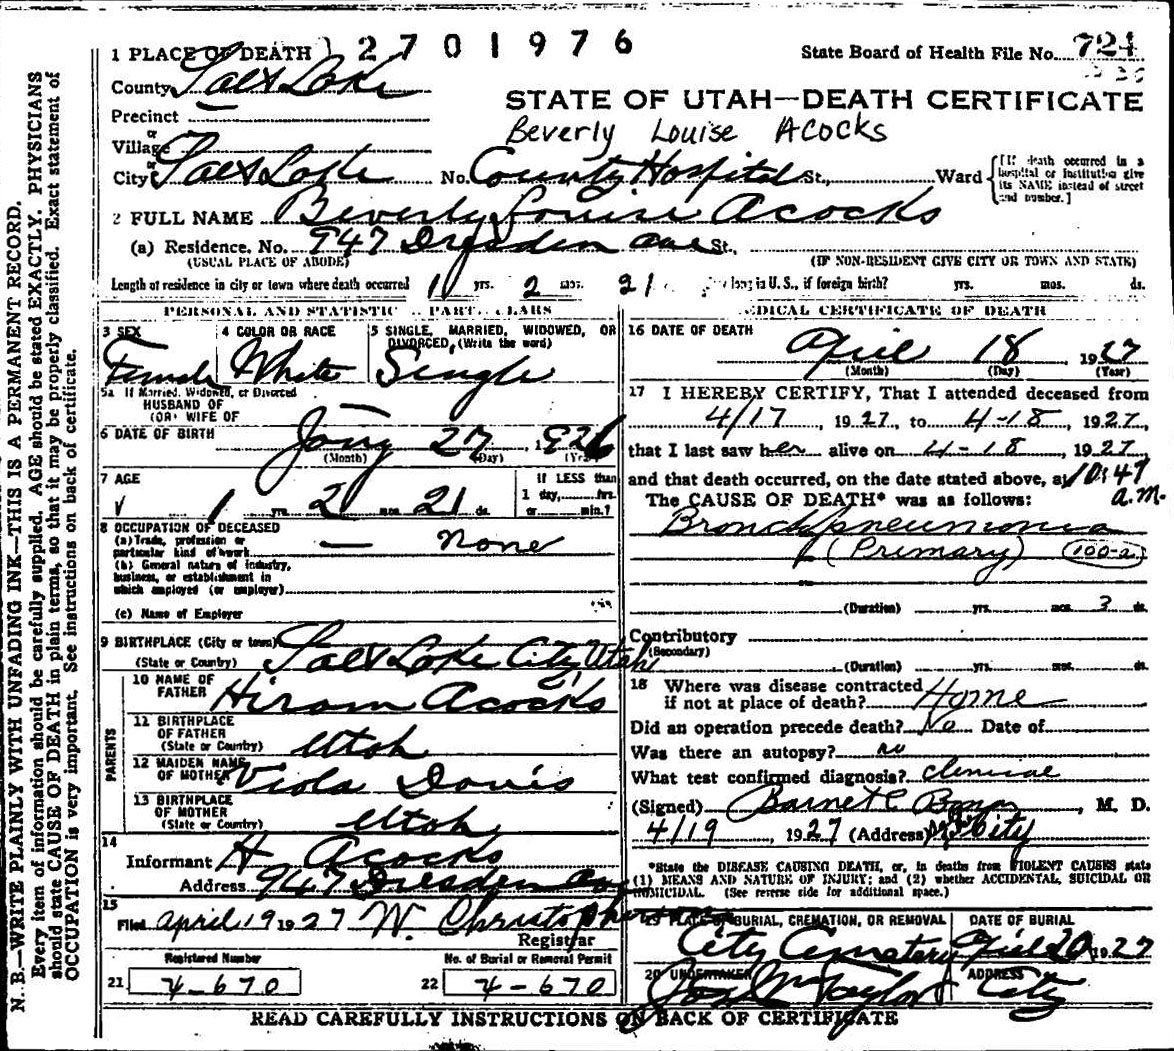 1 PLACE OF DEATH 1 2 7 0 1 9 7 6 State Board of Health File No. 724
County Salt Lake
STATE OF UTAH—DEATH CERTIFICATE
Precinct
or
Village
Beverly Louise Acocks
or
City Salt Lake No. County Hospital St., Ward [If death occurred in a hospital or institution give its NAME instead of street and number.]
2 FULL NAME Beverly Louise Acocks
(a) Residence. No. 947 Dresden Ave St.,
(USUAL PLACE OF ABODE) (IF NON-RESIDENT GIVE CITY OR TOWN AND STATE)
Length of residence in city or town where death occurred 1 yrs. 2 mos. 21 long in U. S., if foreign birth? yrs. mos. ds.
PERSONAL AND STATISTIC PART CLARS
3 SEX 4 COLOR OR RACE 5 SINGLE, MARRIED, WIDOWED, OR DIVORCED, (Write the word)
Female White Single
5a If Married, Widowed, or Divorced
HUSBAND OF
(OR) WIFE OF
6 DATE OF BIRTH Jany 27 1926
(Month) (Day) (Year)
7 AGE If LESS than
1 day, hrs.
1 yrs. 2 mos. 21 ds. or min.?
8 OCCUPATION OF DECEASED
(a) Trade, profession or
particular kind of work — none
(b) General nature of industry,
business, or establishment in
which employed (or employer)
(c) Name of Employer
9 BIRTHPLACE (City or town) Salt Lake City Utah
(State or Country)
PARENTS
10 NAME OF FATHER Hiram Acocks
11 BIRTHPLACE OF FATHER
(State or Country) Utah
12 MAIDEN NAME OF MOTHER Viola Davis
13 BIRTHPLACE OF MOTHER
(State or Country) Utah
14
Informant H Acocks
Address 947 Dresden Ave
15
Filed April 19 1927 W. Christopherson
Registrar
Registered Number No. of Burial or Removal Permit
21 4-670 22 4-670
EDICAL CERTIFICATE OF DEATH
16 DATE OF DEATH
April 18 1927
(Month) (Day) (Year)
17 I HEREBY CERTIFY, That I attended deceased from
4/17, 1927, to 4-18, 1927,
that I last saw her alive on 4-18, 1927
and that death occurred, on the date stated above, at 10:47
The CAUSE OF DEATH* was as follows: a.m.
Bronchopneumonia
(Primary) 100-a
(Duration) yrs. mos. 3 ds.
Contributory
(Secondary)
(Duration) yrs. mos. ds.
18 Where was disease contracted
if not at place of death? Home
Did an operation precede death? No Date of
Was there an autopsy? no
What test confirmed diagnosis? clinical
(Signed) Barnet E , M. D.
4/19, 1927 (Address) City
*State the DISEASE CAUSING DEATH, or, in deaths from VIOLENT CAUSES state
(1) MEANS AND NATURE OF INJURY; and (2) whether ACCIDENTAL, SUICIDAL OR
HOMICIDAL. (See reverse side for additional space.)
19 PLACE OF BURIAL, CREMATION, OR REMOVAL DATE OF BURIAL
City Cemetary April 20 1927
20 UNDERTAKER ADDRESS
Jos Wm Taylor City
READ CAREFULLY INSTRUCTIONS ON BACK OF CERTIFICATE
N. B.—WRITE PLAINLY WITH UNFADING INK—THIS IS A PERMANENT RECORD.
Every item of information should be carefully supplied. AGE should be stated EXACTLY. PHYSICIANS
should state CAUSE OF DEATH in plain terms, so that it may be properly classified. Exact statement of
OCCUPATION is very important. See instructions on back of certificate.